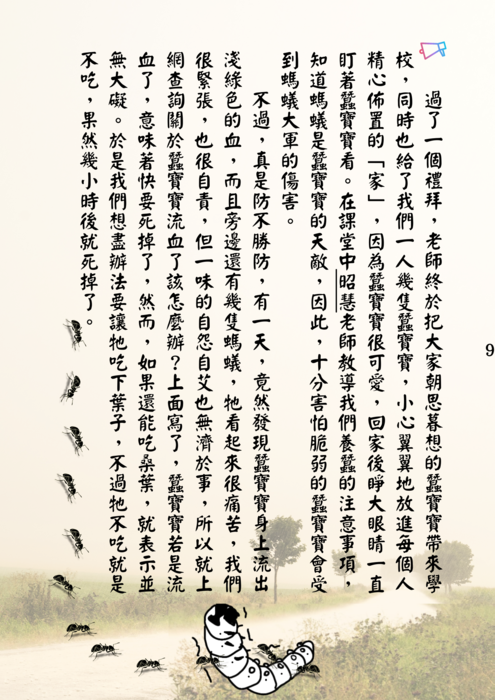 過了一個禮拜，老師終於把大家朝思暮想的蠶寶寶帶來學
校，同時也給了我們一人幾隻蠶寶寶，小心翼翼地放進每個人
精心佈置的「家」，因為蠶寶寶很可愛，回家後睜大眼睛一直
盯著蠶寶寶看。在課堂中昭慧老師教導我們養蠶的注意事項，
知道螞蟻是蠶寶寶的天敵，因此，十分害怕脆弱的蠶寶寶會受
到螞蟻大軍的傷害。
不過，真是防不勝防，有一天，竟然發現蠶寶寶身上流出
淺綠色的血，而且旁邊還有幾隻螞蟻，牠看起來很痛苦，我們
很緊張，也很自責，但一味的自怨自艾也無濟於事，所以就上
網查詢關於蠶寶寶流血了該怎麼辦？上面寫了，蠶寶寶若是流
血了，意味著快要死掉了，然而，如果還能吃桑葉，就表示並
無大礙。於是我們想盡辦法要讓牠吃下葉子，不過牠不吃就是
不吃，果然幾小時後就死掉了。
9